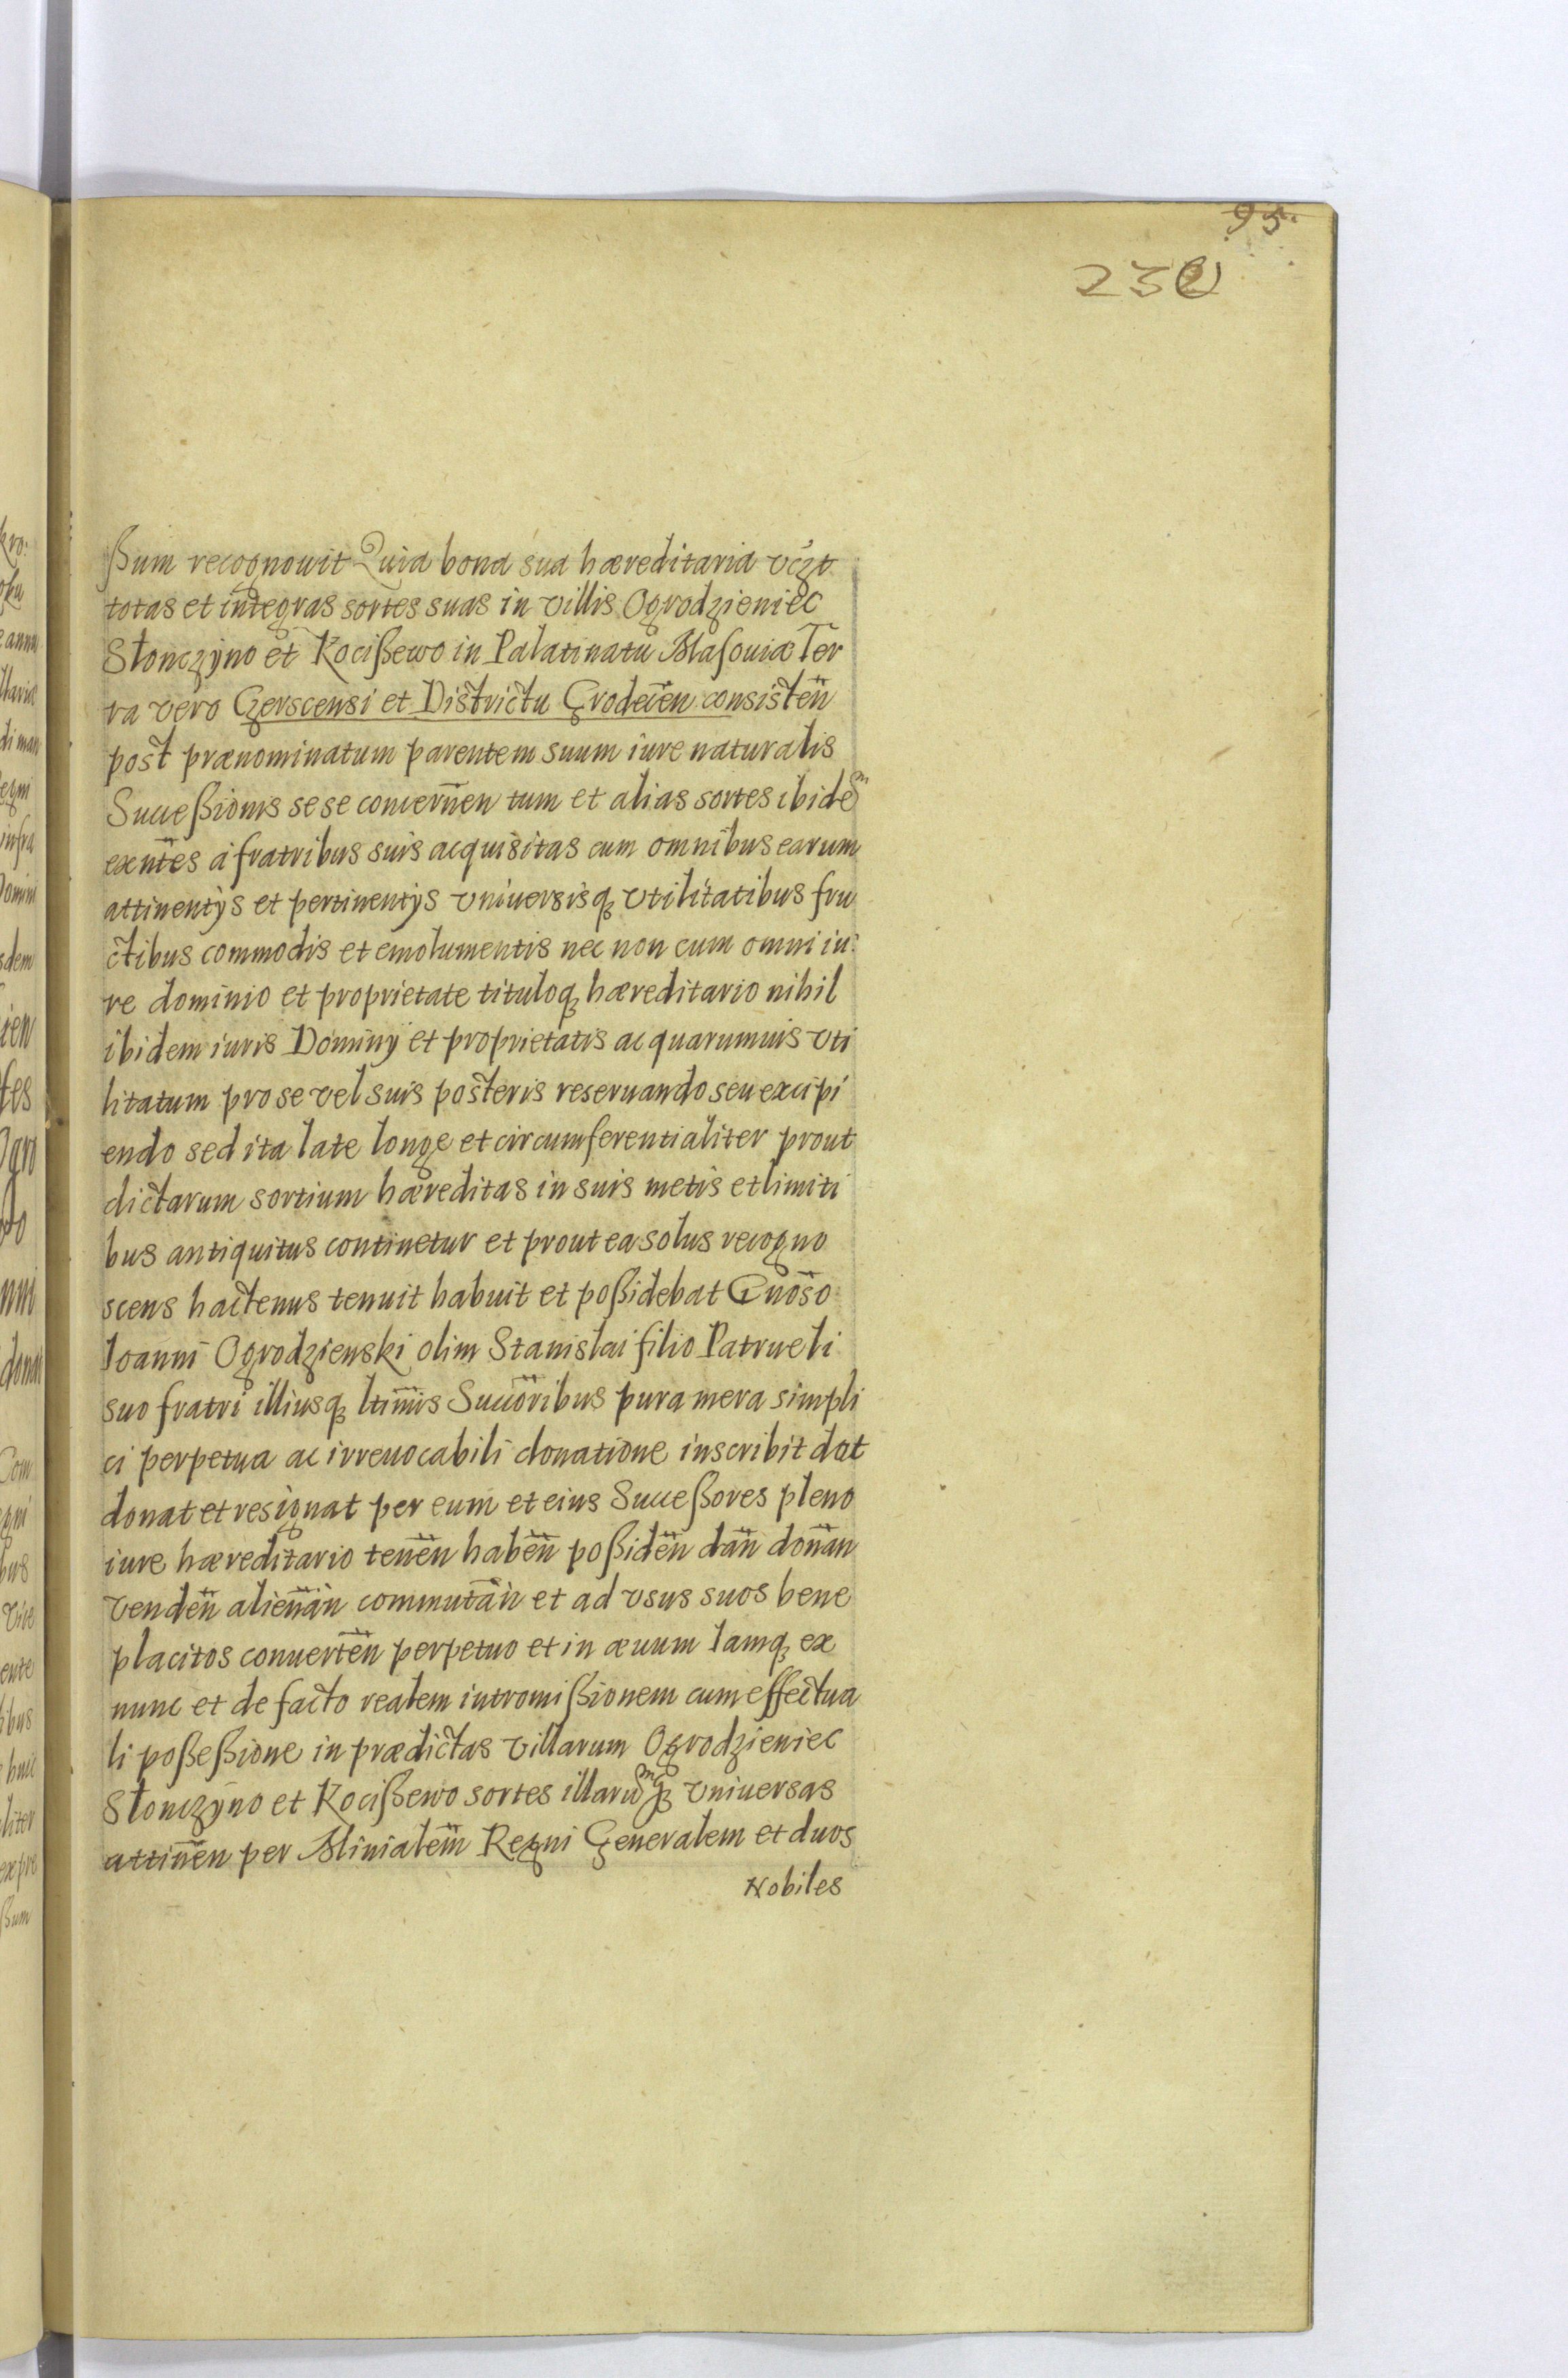 95.
232
ßum recognouit Quia bona sua hæreditaria včzt
totas et integras sortes suas in villis Ogrodzieniec
Słonczyno et Kocißewo in Palatinatu Masouiæ Ter
ra vero Czerscensi et Districtu Grodecen̄ consisten̄
post prænominatum parentem suum iure naturalis
Succeßionis sese concernen̄ tum et alias sortes ibidem
exn̄tes a fratribus suis acquisitas cum omnibus earum
attinentijs et pertinentijs vniuersisq₃ vtilitatibus fru
ctibus commodis et emolumentis nec non cum omni iu
re dominio et proprietate tituloq₃ hæreditario nihil
ibidem iuris Dominij et proprietatis ac quarumuis vti
litatum pro se vel suis posteris reseruando seu excipi
endo sed ita late longe et circumferentialiter prout
dictarum sortium hæreditas in suis metis et limiti
bus antiquitus continetur et prout ea solus recogno
scens hactenus tenuit habuit et poßidebat Gn̄oso
Ioanni Ogrodzienski olim Stanislai filio Patrueli
suo fratri illiusq₃ ltim̄is Succ̄oribus pura mera simpli
ci perpetua ac irreuocabili donatione inscribit dat
donat et resignat per eum et eius Succeßores pleno
iure hæreditario tenen̄ haben̄ poßiden̄ dan̄ donan̄
venden̄ alienan̄ commutan̄ et ad vsus suos bene
placitos conuerten̄ perpetuo et in æuum Iamq₃ ex
nunc et de facto realem intromißionem cum effectua
li poßeßione in prædictas villarum Ogrodzieniec
Słonczyno et Kocißewo sortes illarumq₃ vniuersas
attinen̄ per Minialem̄ Regni Generalem et duos
Nobiles